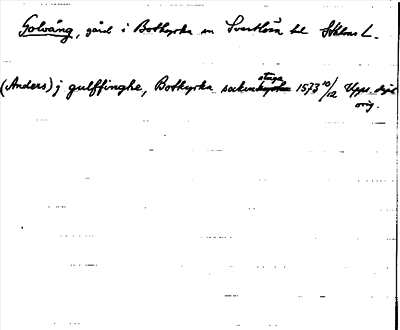 Golväng, gård i Botkyrka sn Svartlösa hd Sthlms L.
(Anders) j gulffinghe, Botkyrka sockenstuga 1573 10/12 Upps. dipl. orig.